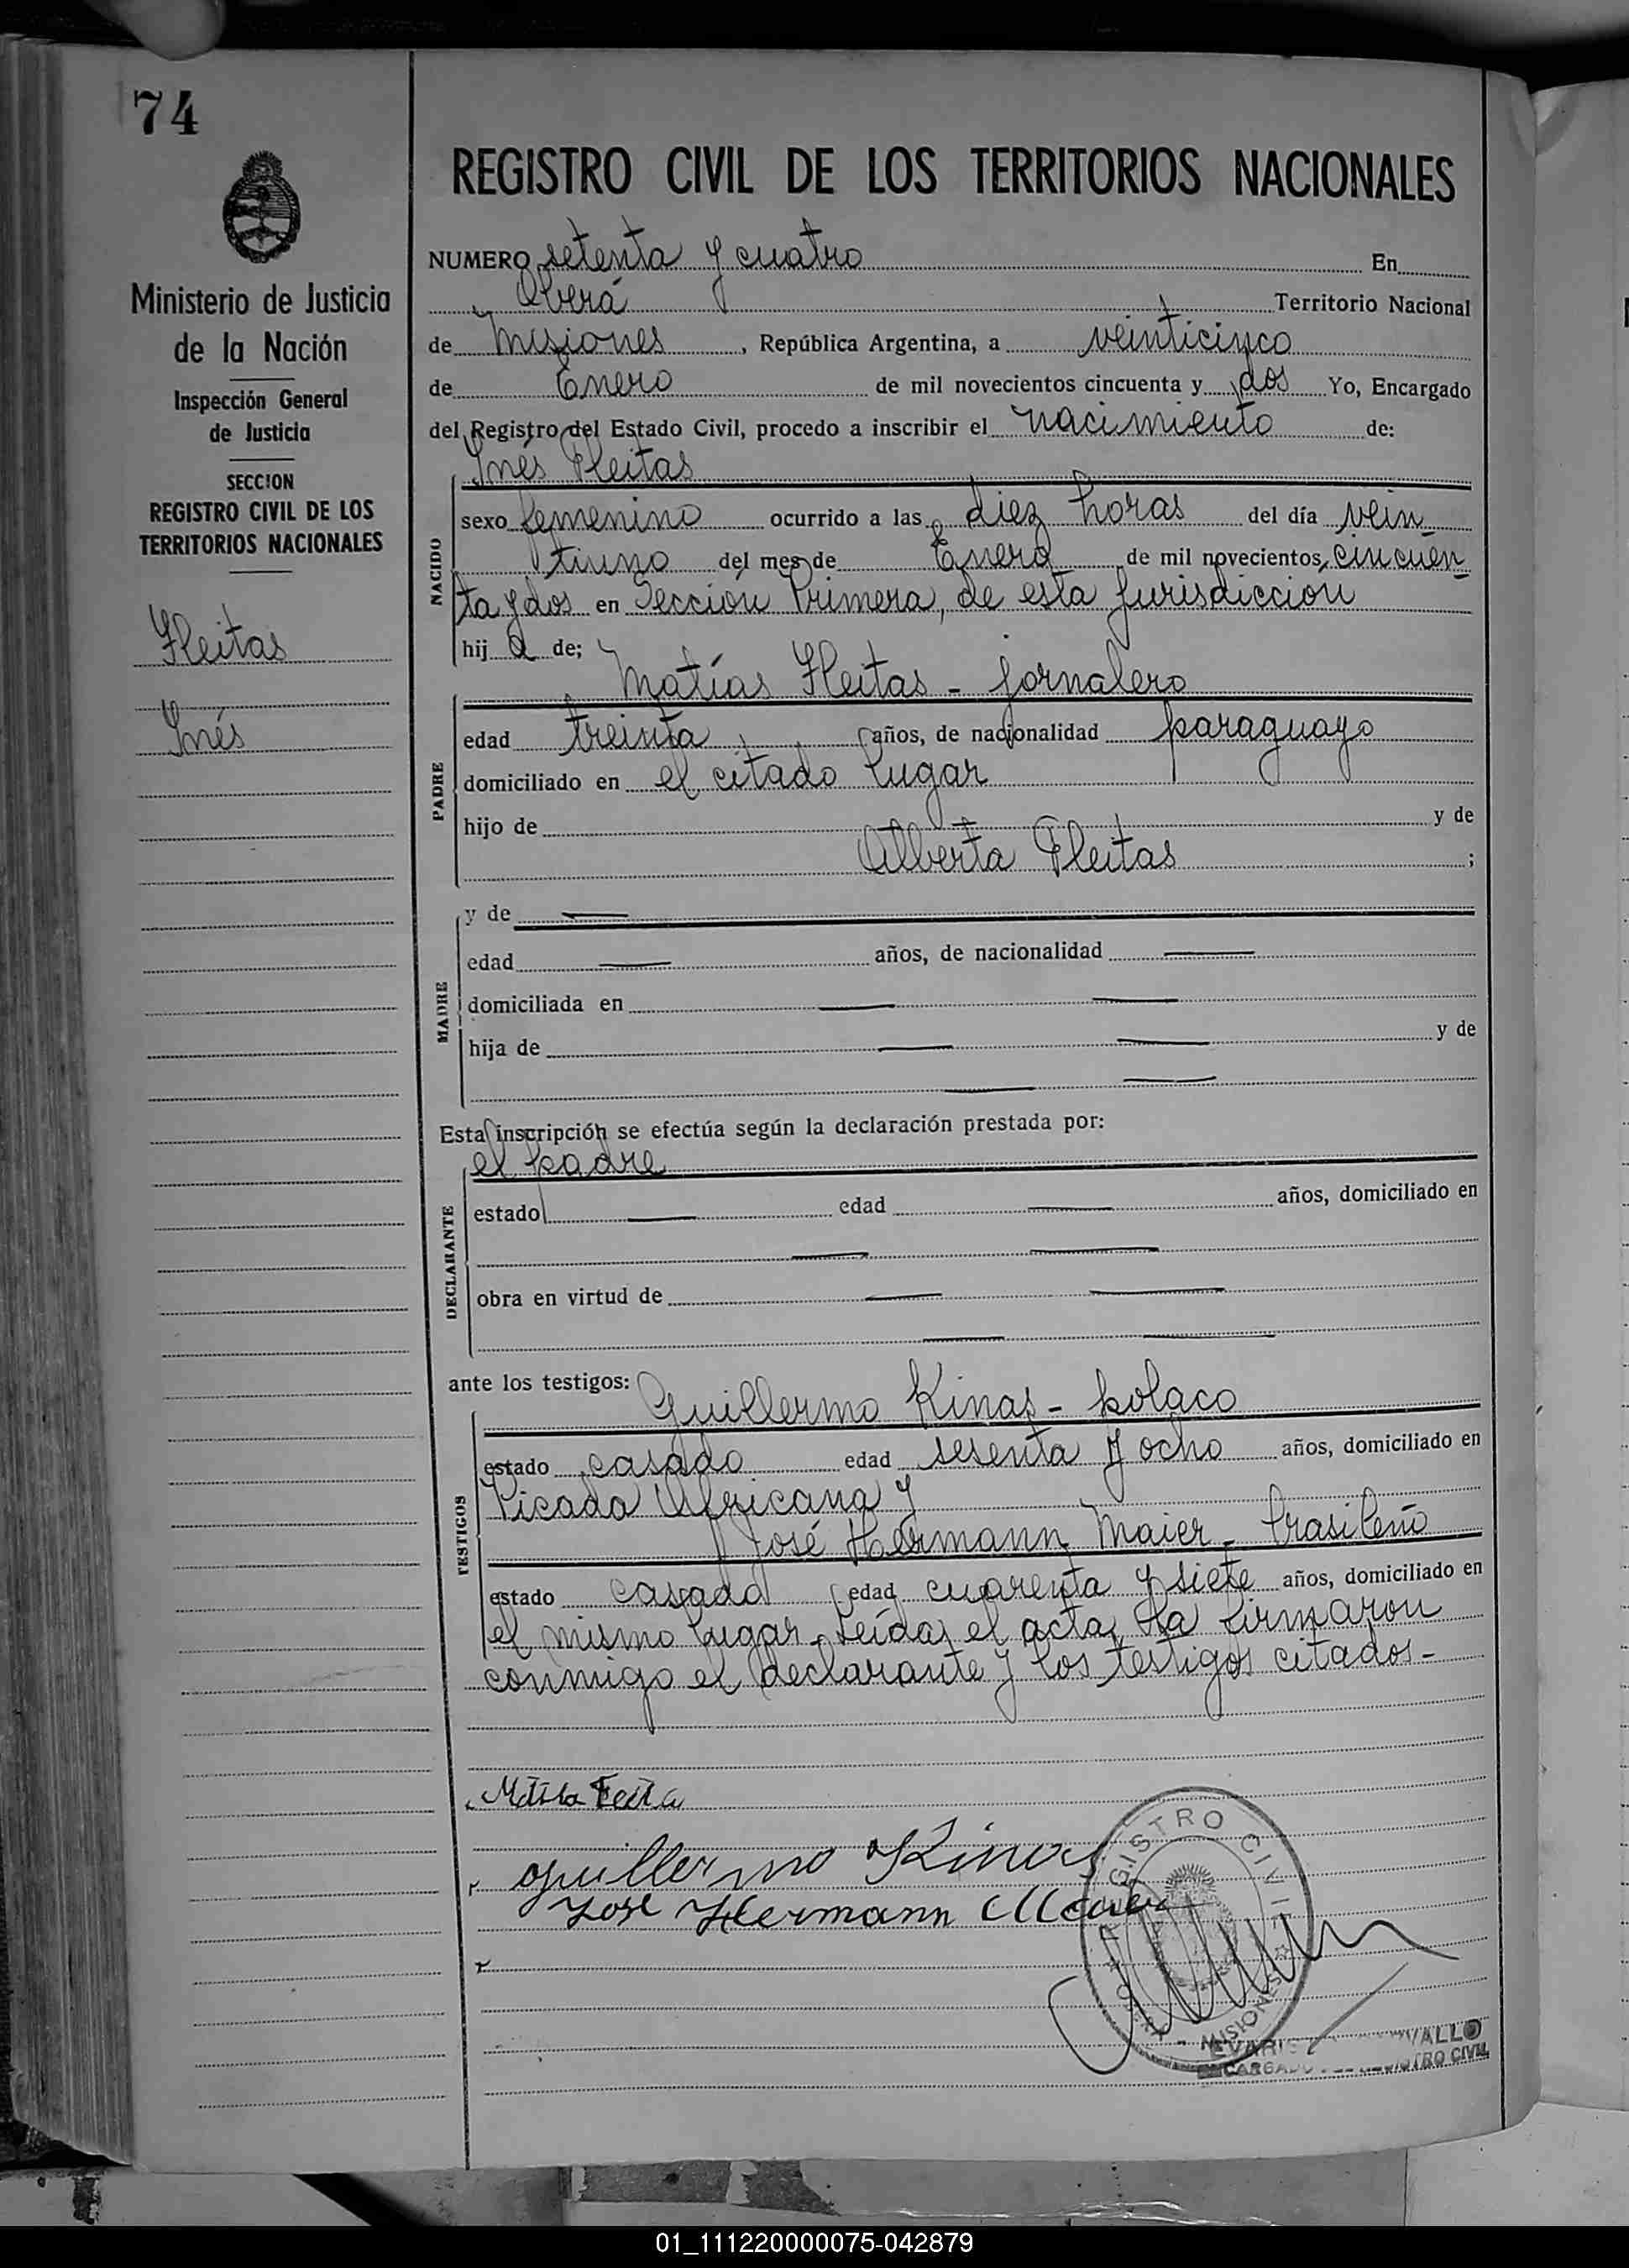 74
REGISTRO CIVIL DE LOS TERRITORIOS NACIONALES
Ministerio de Justicia
de la Nación
Inspección General
de Justicia
SECCION
REGISTRO CIVIL DE LOS
TERRITORIOS NACIONALES
Fleitas
Inés
NUMERO setenta y cuatro En
Oberá Territorio Nacional
de Misiones, República Argentina, a veinticinco
de Enero de mil novecientos cincuenta y dos Yo, Encargado
del Registro del Estado Civil, procedo a inscribir el nacimiento de:
Inés Fleitas
NACIDO
sexo femenino ocurrido a las diez horas del día vein
tiuno del mes de Enero de mil novecientos cincuen
ta y dos en Sección Primera, de esta jurisdicción
hij a de;
Matías Fleitas - jornalero
PADRE
edad treinta años, de nacionalidad paraguayo
domiciliado en el citado lugar
hijo de y de
Alberta Fleitas ;
MADRE
y de —
edad — años, de nacionalidad —
domiciliada en — —
hija de — — y de
— —
Esta inscripción se efectúa según la declaración prestada por:
el padre
DECLARANTE
estado — edad — años, domiciliado en
— —
obra en virtud de — —
— —
ante los testigos:
Guillermo Kinas - polaco
TESTIGOS
estado casado edad sesenta y ocho años, domiciliado en
Picada Africana y
José Hermann Maier - brasileño
estado casado edad cuarenta y siete años, domiciliado en
el mismo lugar. Leída el acta, la firmaron
conmigo el declarante y los testigos citados -
Guillermo Kinas
José Hermann
REGISTRO CIVIL
MISIONES
ENCARGADO REGISTRO CIVIL
01_111220000075-042879